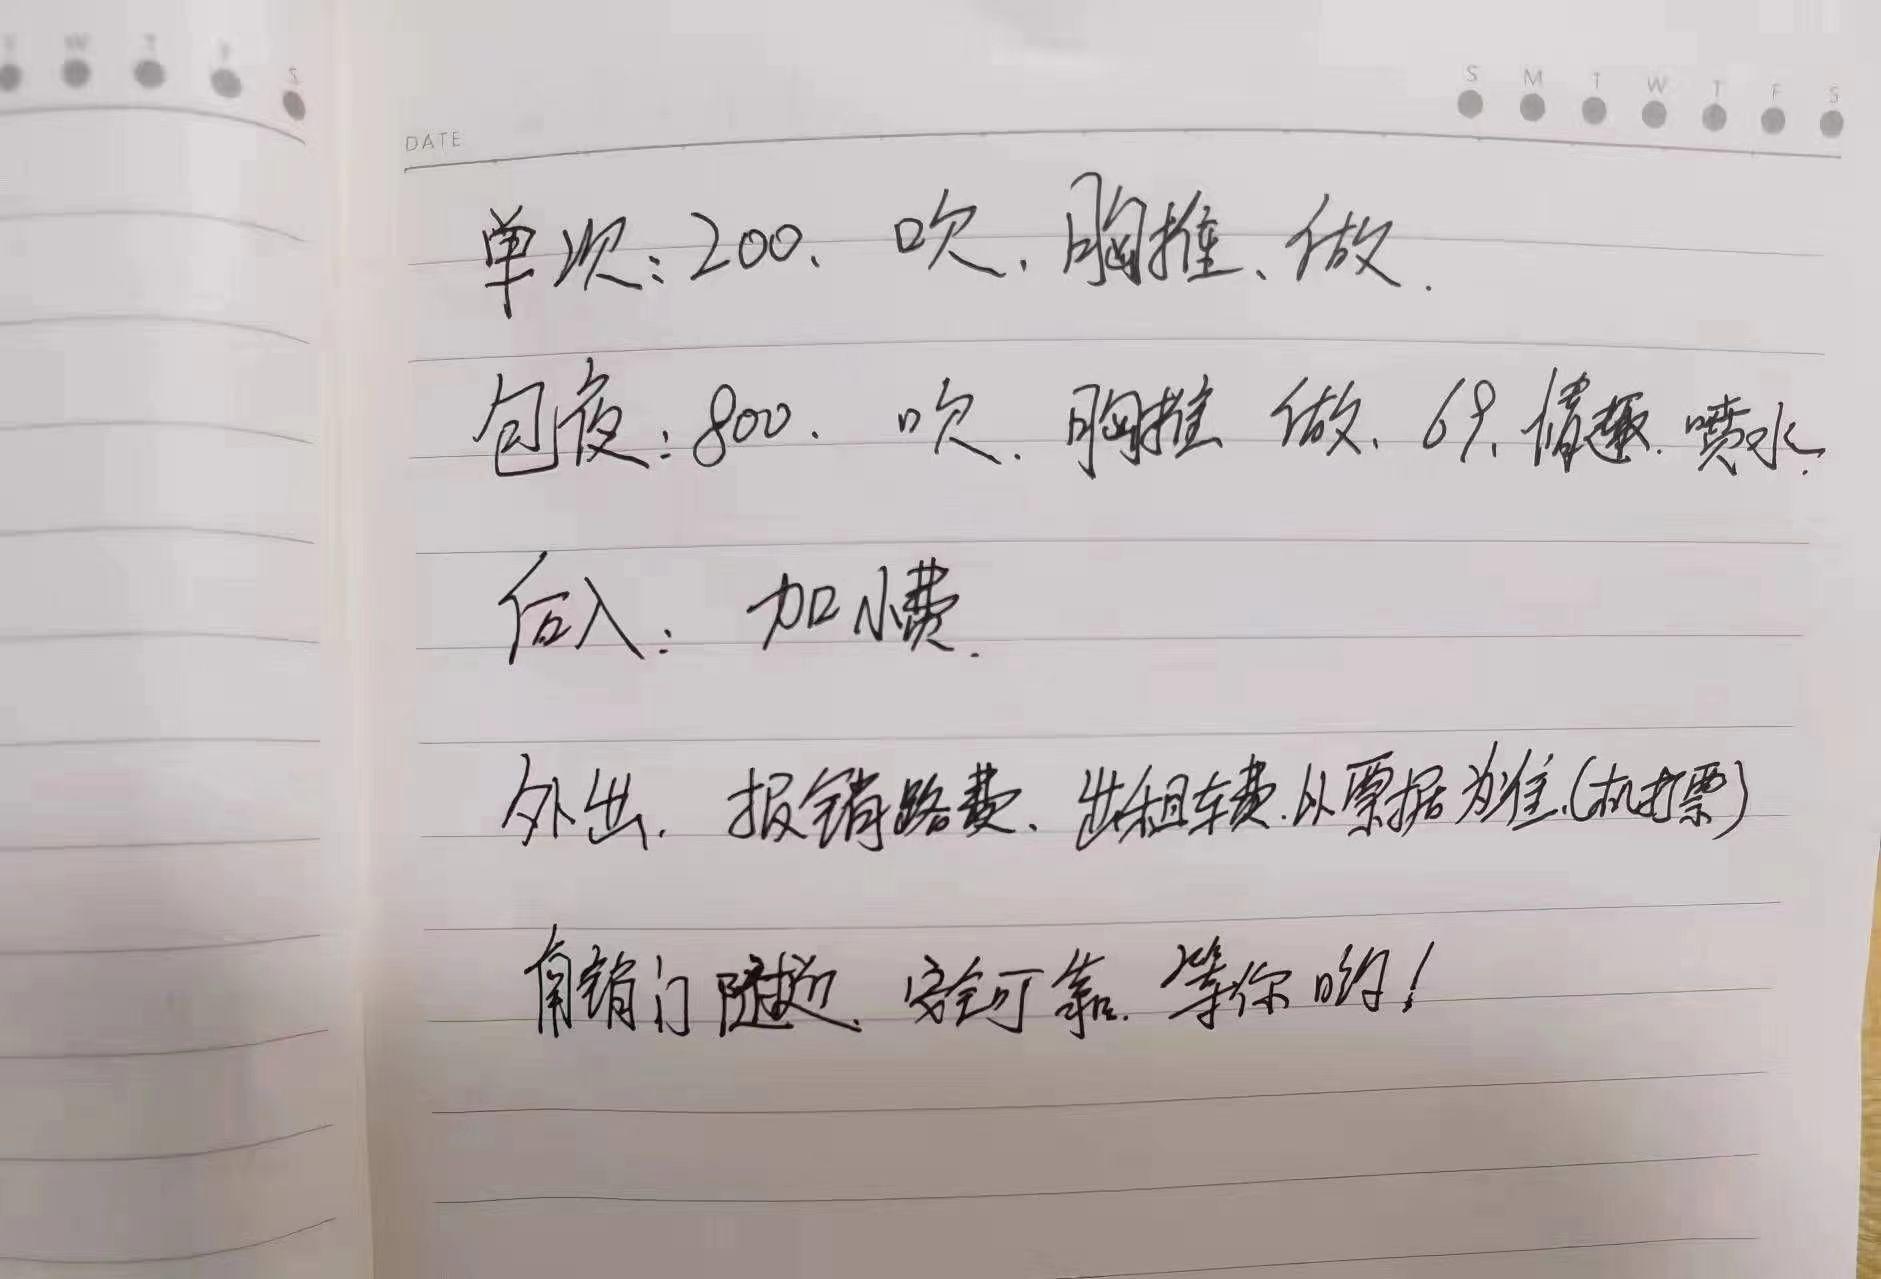 S M T W T F S
W T F S
DATE
单次：200、吹、胸推、做.
包夜：800. 吹. 胸推 做、69、情趣. 喷水.
后入： 加小费.
外出. 报销路费、出租车费.以票据为准.(机打票)
安全可靠. 等你哟！